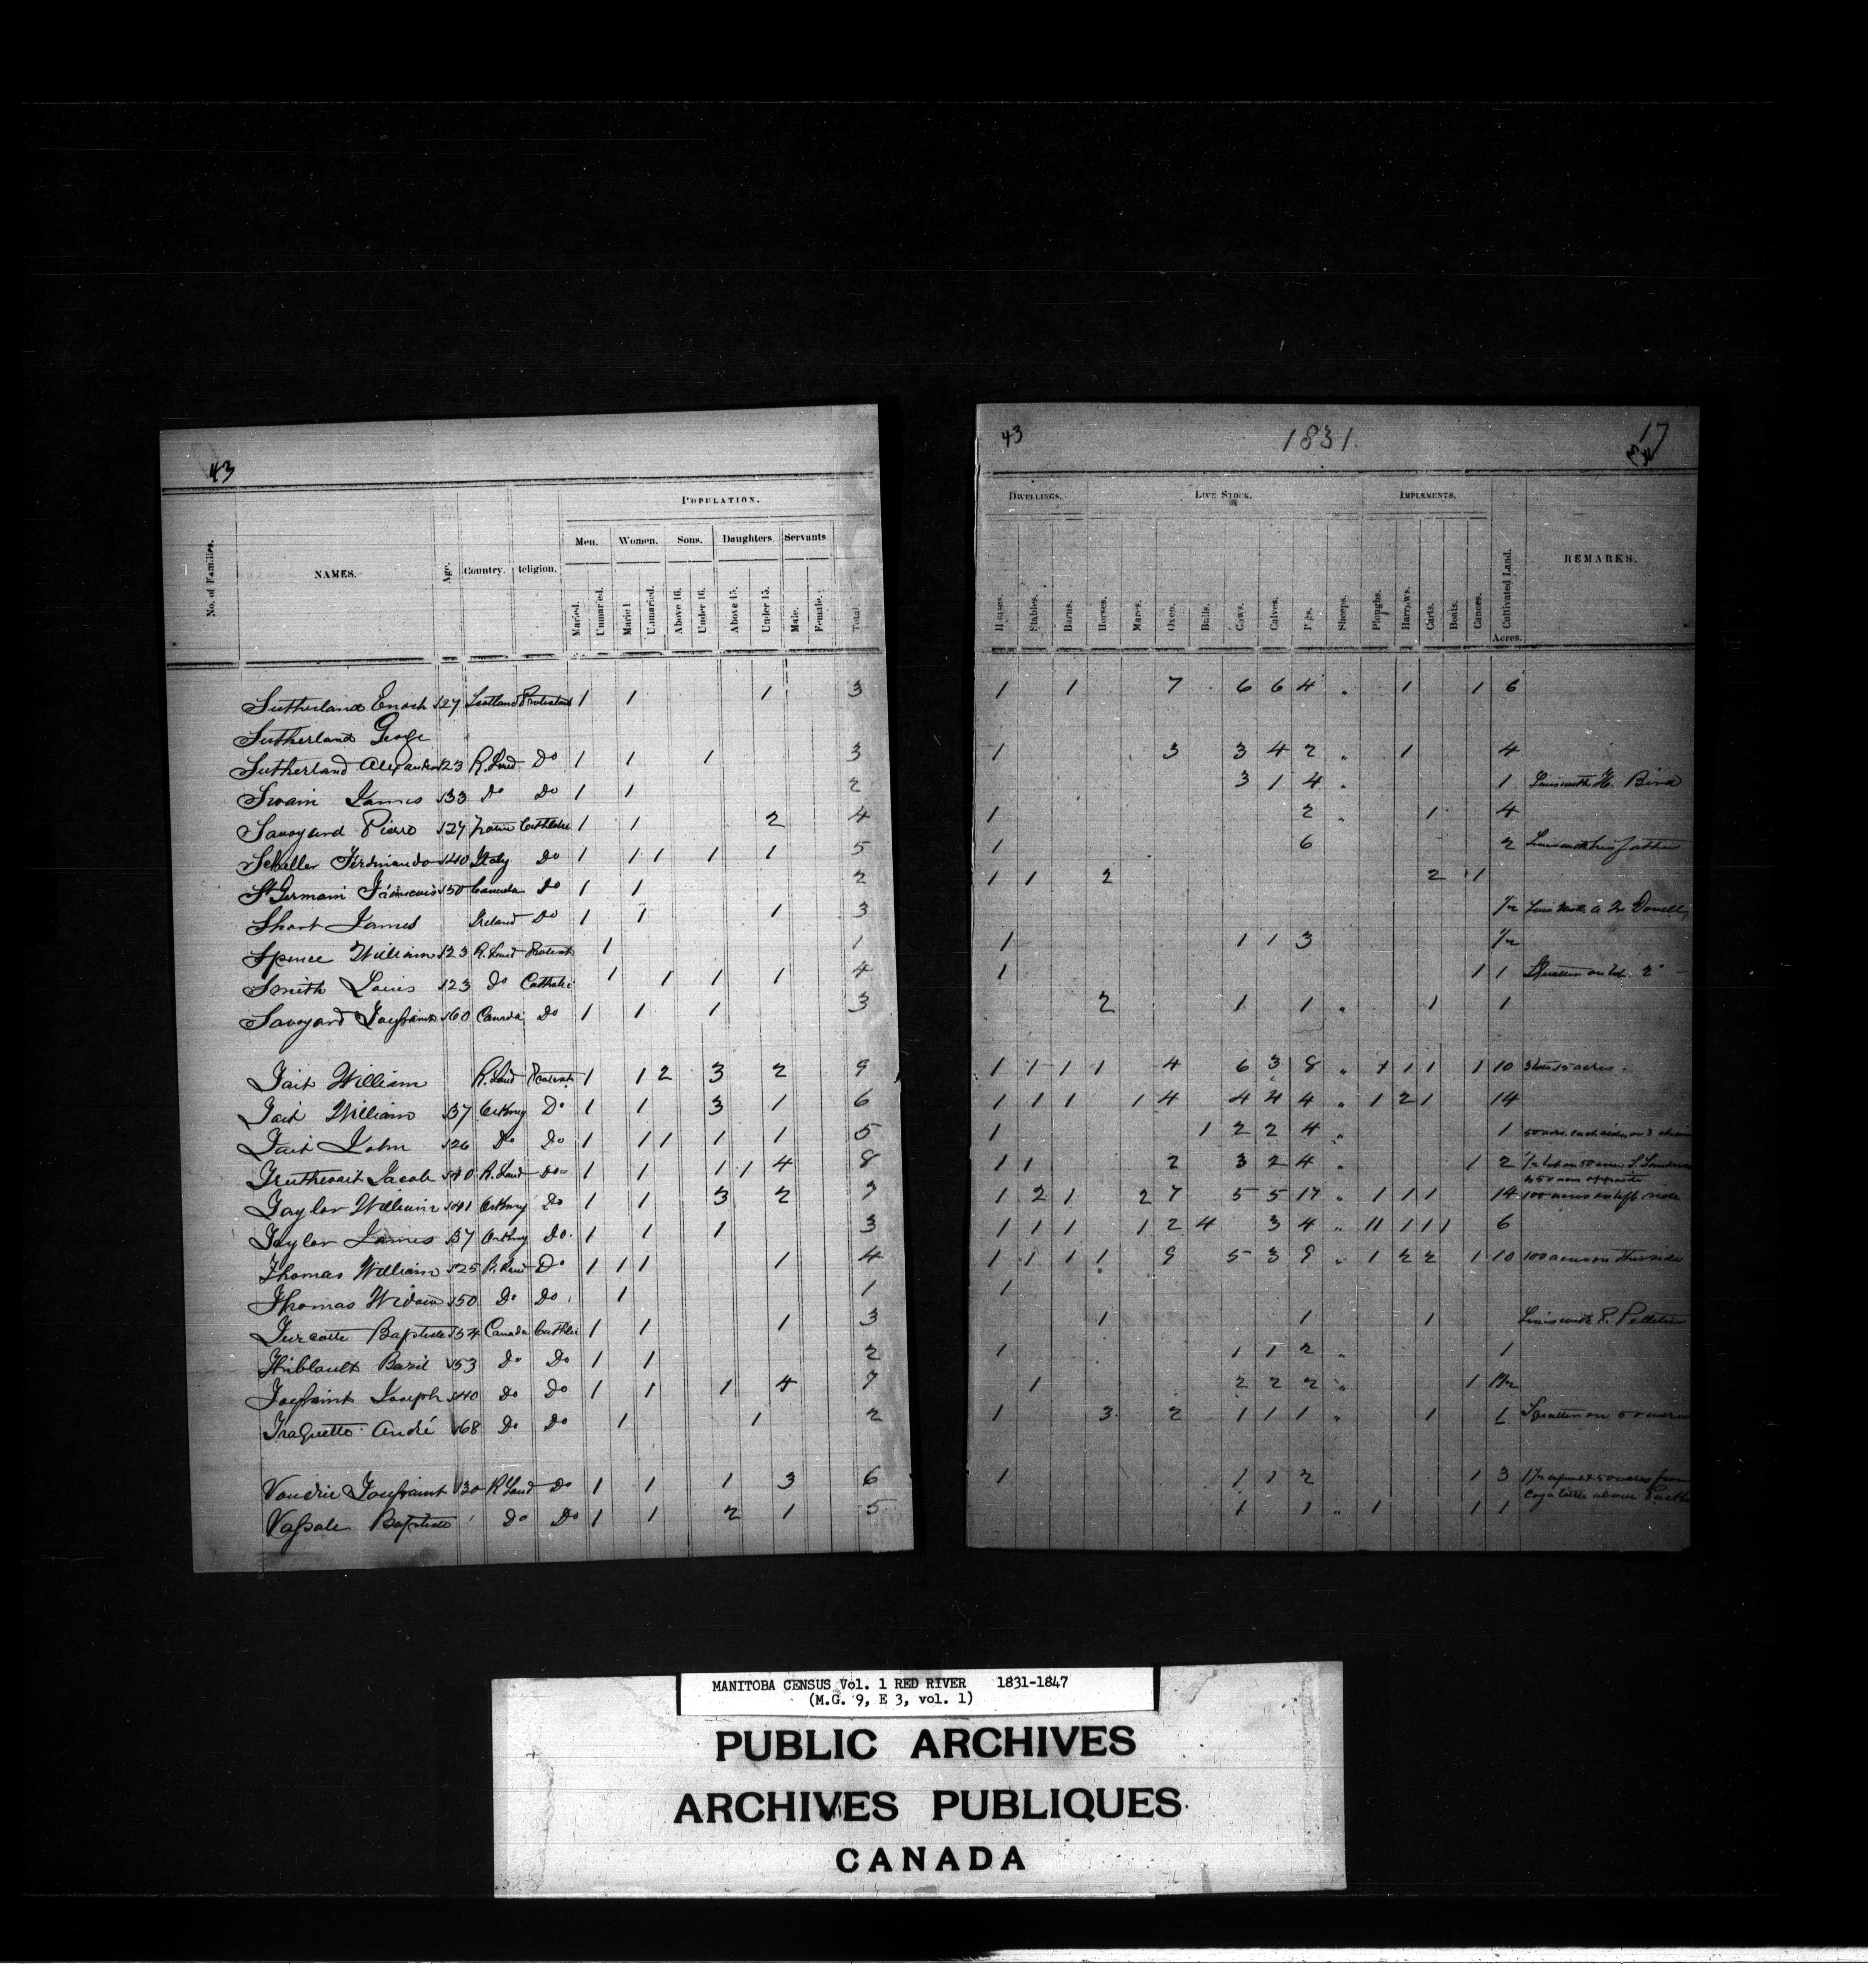 43
No. of Families.
NAMES.
Age.
Country.
Religion.
POPULATION.
Men. Women. Sons. Daughters. Servants
Married. Unmarried. Married. Unmarried. Above 16. Under 16. Above 15. Under 15. Male. Female. Total.
Sutherland Enoch 27 Scotland Protestant 1 1 1 3
Sutherland George
Sutherland Alexander 23 R. Land Do 1 1 1 3
Swain James 33 Do Do 1 1 2
Savoyard Pierre 27 Catholic 1 1 2 4
Scheller Ferdinando 40 Italy Do 1 1 1 1 1 5
St Germain Francois 50 Canada Do 1 1 2
Short James Ireland Do 1 1 1 3
Spence William 23 R. Land Protestant 1 1
Smith Louis 23 Do Catholic 1 1 1 1 4
Savoyard Toussaint 60 Canada Do 1 1 1 3
Tait William R. Land Protestant 1 1 2 3 2 9
Tait William 37 Orkney Do 1 1 3 1 6
Tait John 26 Do Do 1 1 1 1 1 5
Truthwait Jacob 40 R. Land Do 1 1 1 1 4 8
Taylor William 41 Orkney Do 1 1 3 2 7
Taylor James 37 Orkney Do. 1 1 1 3
Thomas William 25 R. Land Do 1 1 1 1 4
Thomas Widow 50 Do Do 1 1
Turcotte Baptiste 54 Canada Catholic 1 1 1 3
Thiblault Bazil 53 Do Do 1 1 2
Toussaint Joseph 40 Do Do 1 1 1 4 7
André 68 Do Do 1 1 2
Vandrie Toussaint 30 R Land Do 1 1 1 3 6
Vassale Baptiste Do Do 1 1 2 1 5
43 1831. 17
DWELLINGS. LIVE STOCK. IMPLEMENTS.
Houses. Stables. Barns. Horses. Mares. Oxen. Bulls. Cows. Calves. Pigs. Sheeps. Ploughs. Harrows. Carts. Boats. Canoes. Cultivated Land. Acres.
REMARKS.
1 1 7 6 6 4 " 1 1 6
1 3 3 4 2 " 1 4
3 1 4 " 1 Lives with H. Bird
1 2 " 1 4
1 6 2 Lives with his father
1 1 2 2 1
1/2 Lives with A Mc Donell
1 1 1 3 1/2
1 1 1 Squatter on lot 2
2 1 1 " 1 1
1 1 1 1 4 6 3 8 " + 1 1 1 10 15 acres.
1 1 1 1 4 4 4 4 " 1 2 1 14
1 1 2 2 4 " 1 50 acres each side on 3
1 1 2 3 2 4 " 1 2 1/2 lot on 50 acres
& 50 acres opposite
1 2 1 2 7 5 5 17 " 1 1 1 14 100 acres on left side
1 1 1 1 2 4 3 4 " 11 1 1 1 6
1 1 1 1 9 5 3 9 " 1 2 2 1 10 100 acres on this side
1
1 1 1 Lives with P. Pelletier
1 1 1 2 " 1
1 2 2 2 " 1 1 1/2
1 3 2 1 1 1 " 1 1 Squatter on 50 acres
1 1 1 2 1 3 50 acres from
a little above
1 1 " 1 1 1
MANITOBA CENSUS Vol. 1 RED RIVER 1831-1847
(M.G. 9, E 3, vol. 1)
PUBLIC ARCHIVES
ARCHIVES PUBLIQUES
CANADA